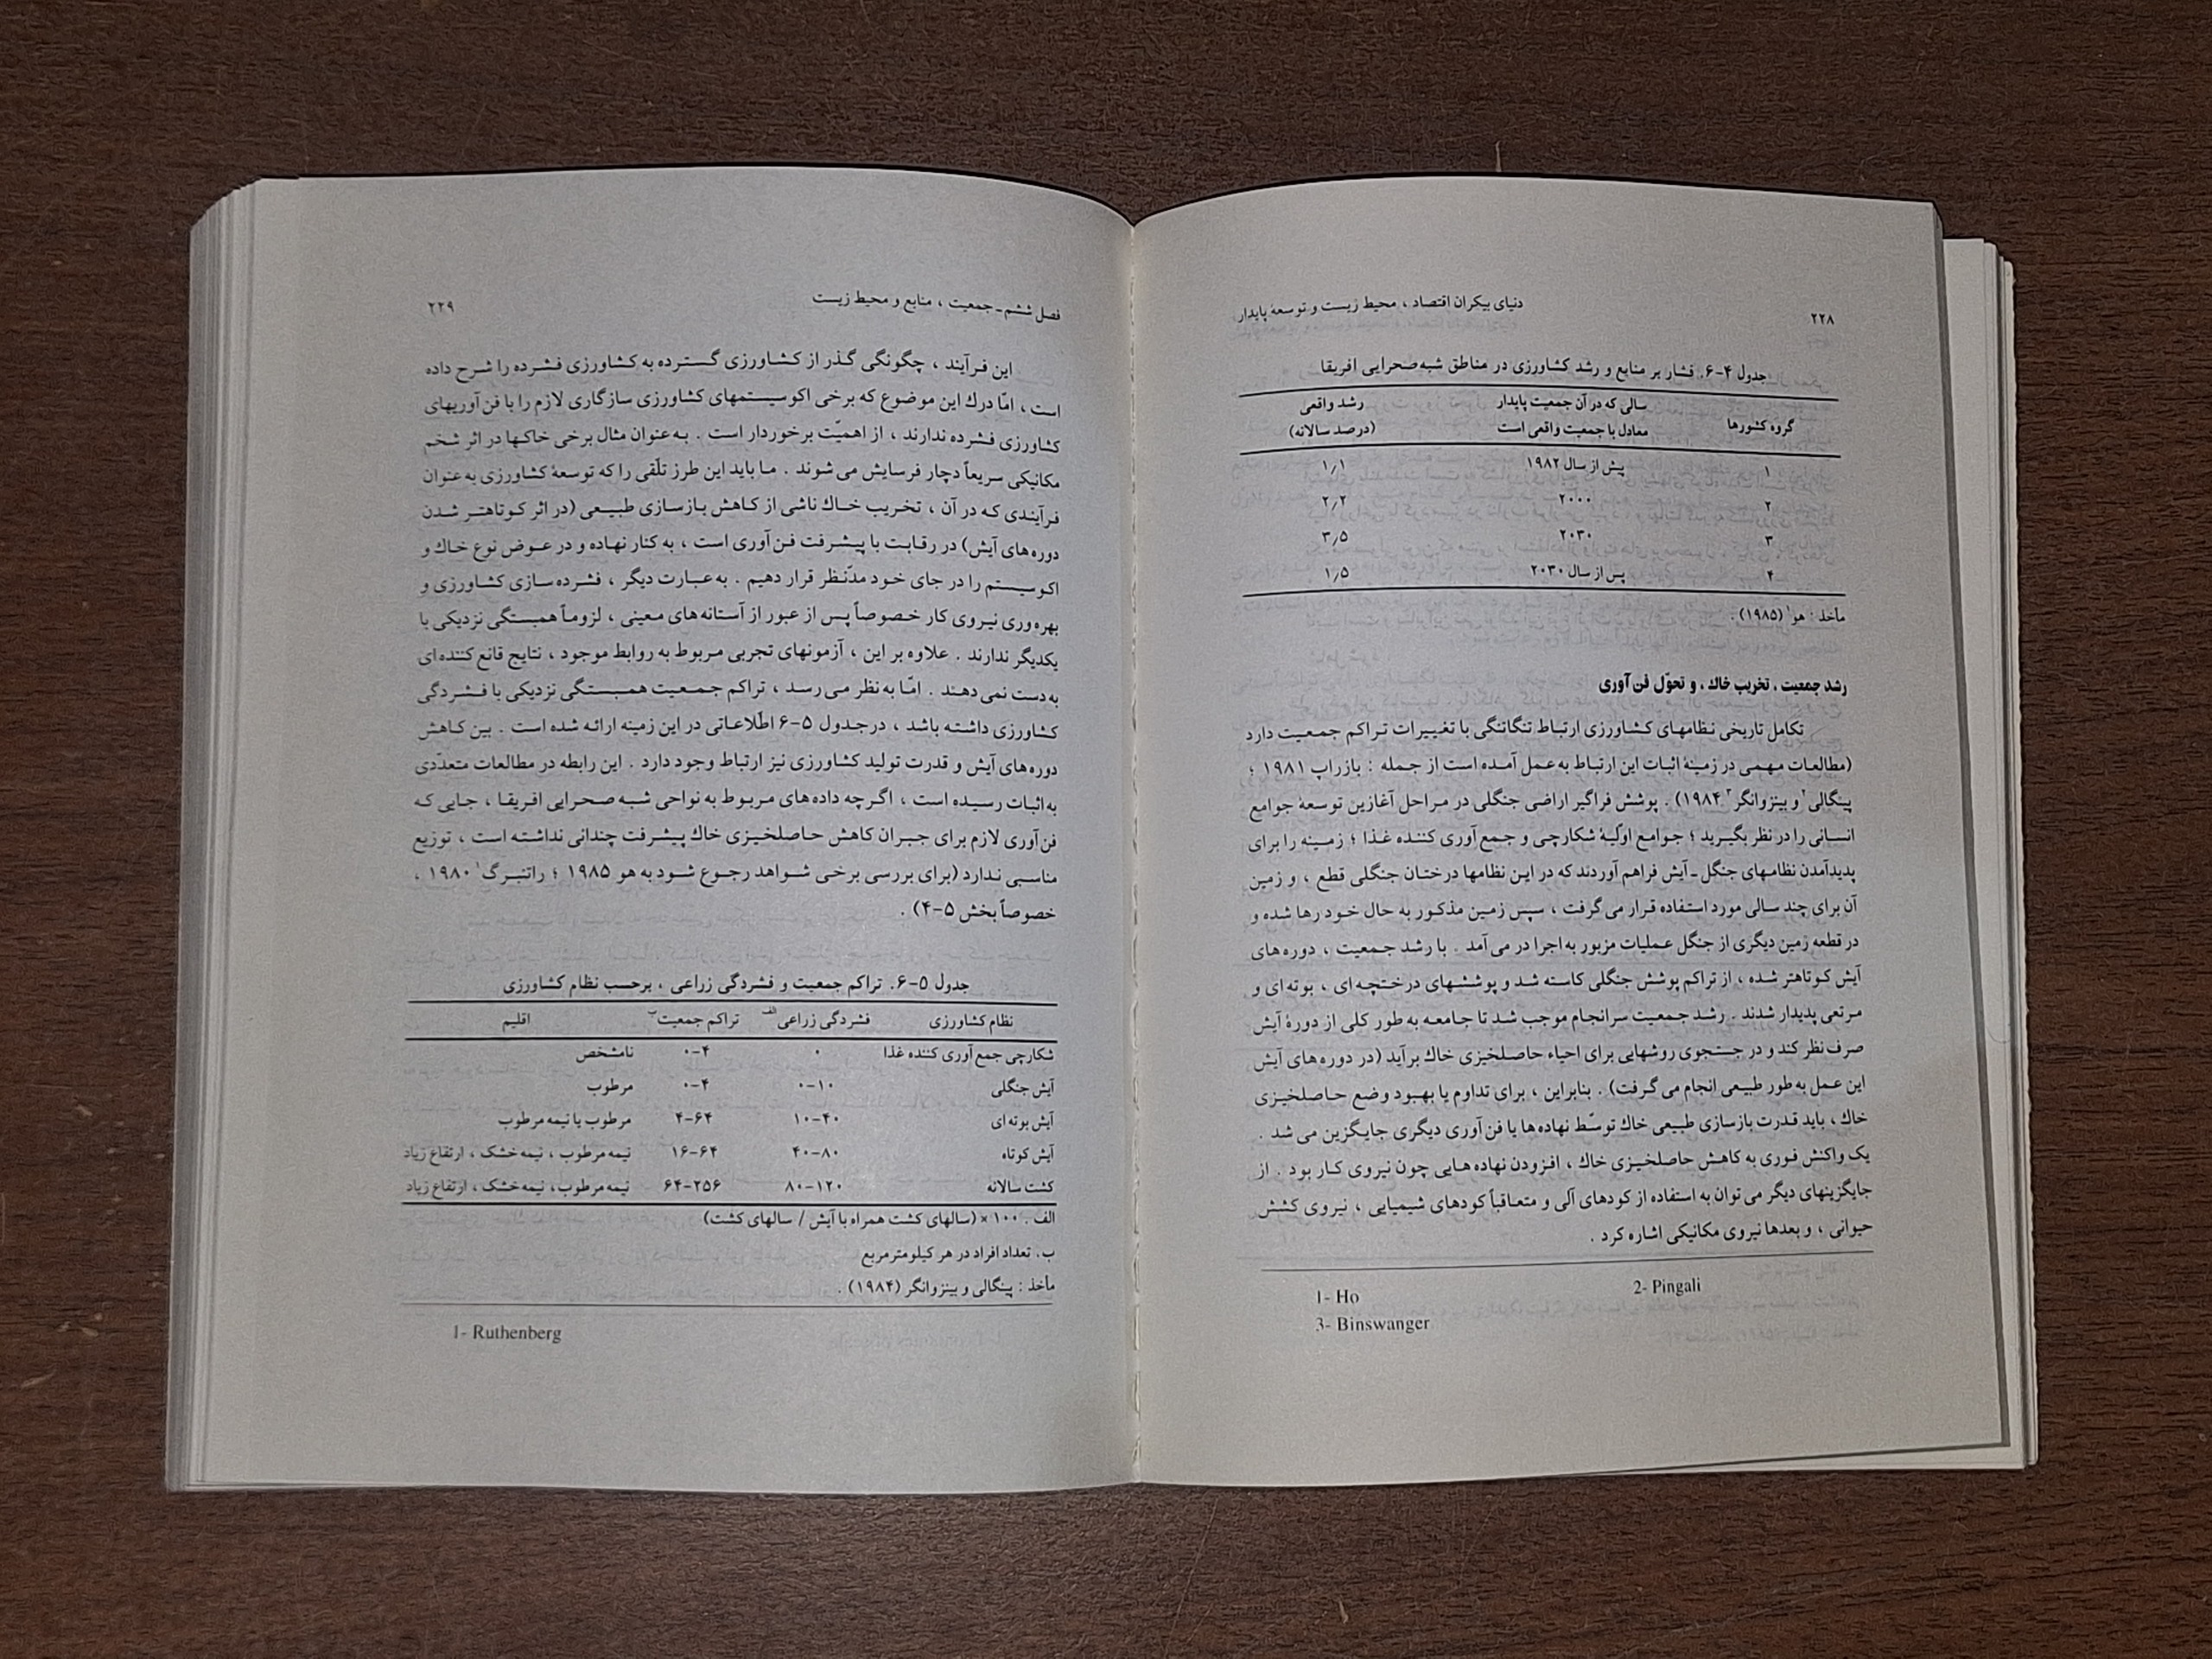 ۲۲۸
دنیای بیکران اقتصاد ، محیط زیست و توسعهٔ پایدار
جدول ۴-۶. فشار بر منابع و رشد کشاورزی در مناطق شبه‌صحرایی افریقا
گروه کشورها سالی که در آن جمعیت پایدار معادل با جمعیت واقعی است رشد واقعی (درصد سالانه)
۱ پیش از سال ۱۹۸۲ ۱٫۱
۲ ۲۰۰۰ ۲٫۲
۳ ۲۰۳۰ ۳٫۵
۴ پس از سال ۲۰۳۰ ۱٫۵
مأخذ : هو۱ (۱۹۸۵) .
رشد جمعیت ، تخریب خاك ، و تحوّل فن‌آوری
تکامل تاریخی نظامهای کشاورزی ارتباط تنگاتنگی با تغییرات تراکم جمعیت دارد
(مطالعات مهمی در زمینهٔ اثبات این ارتباط به‌عمل آمده است از جمله : بازراپ ۱۹۸۱ ؛
پینگالی۲ و بینزوانگر۳ ۱۹۸۴) . پوشش فراگیر اراضی جنگلی در مراحل آغازین توسعهٔ جوامع
انسانی را در نظر بگیرید ؛ جوامع اوّلیهٔ شکارچی و جمع‌آوری کننده غذا ؛ زمینه را برای
پدیدآمدن نظامهای جنگل ـ آیش فراهم آوردند که در این نظامها درختان جنگلی قطع ، و زمین
آن برای چند سالی مورد استفاده قرار می‌گرفت ، سپس زمین مذکور به حال خود رها شده و
در قطعه زمین دیگری از جنگل عملیات مزبور به‌اجرا در می‌آمد . با رشد جمعیت ، دوره‌های
آیش کوتاهتر شده ، از تراکم پوشش جنگلی کاسته شد و پوششهای درختچه‌ای ، بوته‌ای و
مرتعی پدیدار شدند . رشد جمعیت سرانجام موجب شد تا جامعه به طور کلی از دورهٔ آیش
صرف‌نظر کند و در جستجوی روشهایی برای احیاء حاصلخیزی خاك برآید (در دوره‌های آیش
این عمل به‌طور طبیعی انجام می‌گرفت) . بنابراین ، برای تداوم یا بهبود وضع حاصلخیزی
خاك ، باید قدرت بازسازی طبیعی خاك توسّط نهاده‌ها یا فن‌آوری دیگری جایگزین می‌شد .
یک واکنش فوری به کاهش حاصلخیزی خاك ، افزودن نهاده‌هایی چون نیروی کار بود . از
جایگزینهای دیگر می‌توان به استفاده از کودهای آلی و متعاقباً کودهای شیمیایی ، نیروی کشش
حیوانی ، و بعدها نیروی مکانیکی اشاره کرد .
1- Ho 2- Pingali
3- Binswanger
فصل ششم ـ جمعیت ، منابع و محیط زیست
۲۲۹
این فرآیند ، چگونگی گذر از کشاورزی گسترده به کشاورزی فشرده را شرح داده
است ، امّا درك این موضوع که برخی اکوسیستمهای کشاورزی سازگاری لازم را با فن‌آوریهای
کشاورزی فشرده ندارند ، از اهمیّت برخوردار است . به‌عنوان مثال برخی خاکها در اثر شخم
مکانیکی سریعاً دچار فرسایش می‌شوند . ما باید این طرز تلّقی را که توسعهٔ کشاورزی به‌عنوان
فرآیندی که در آن ، تخریب خاك ناشی از کاهش بازسازی طبیعی (در اثر کوتاهتر شدن
دوره‌های آیش) در رقابت با پیشرفت فن‌آوری است ، به کنار نهاده و در عوض نوع خاك و
اکوسیستم را در جای خود مدّنظر قرار دهیم . به‌عبارت دیگر ، فشرده سازی کشاورزی و
بهره‌وری نیروی کار خصوصاً پس از عبور از آستانه‌های معینی ، لزوماً همبستگی نزدیکی با
یکدیگر ندارند . علاوه بر این ، آزمونهای تجربی مربوط به روابط موجود ، نتایج قانع‌کننده‌ای
به‌دست نمی‌دهند . امّا به نظر می‌رسد ، تراکم جمعیت همبستگی نزدیکی با فشردگی
کشاورزی داشته باشد ، درجدول ۵-۶ اطّلاعاتی در این زمینه ارائه شده است . بین کاهش
دوره‌های آیش و قدرت تولید کشاورزی نیز ارتباط وجود دارد . این رابطه در مطالعات متعدّدی
به‌اثبات رسیده است ، اگرچه داده‌های مربوط به نواحی شبه صحرایی افریقا ، جایی که
فن‌آوری لازم برای جبران کاهش حاصلخیزی خاك پیشرفت چندانی نداشته است ، توزیع
مناسبی ندارد (برای بررسی برخی شواهد رجوع شود به هو ۱۹۸۵ ؛ راتنبرگ۱ ۱۹۸۰ ،
خصوصاً بخش ۵-۴) .
جدول ۵-۶. تراکم جمعیت و فشردگی زراعی ، برحسب نظام کشاورزی
نظام کشاورزی فشردگی زراعی الف تراکم جمعیت ب اقلیم
شکارچی جمع‌آوری کننده غذا ۰ ۰-۴ نامشخص
آیش جنگلی ۰-۱۰ ۰-۴ مرطوب
آیش بوته‌ای ۱۰-۴۰ ۴-۶۴ مرطوب یا نیمه مرطوب
آیش کوتاه ۴۰-۸۰ ۱۶-۶۴ نیمه مرطوب ، نیمه خشک ، ارتفاع زیاد
کشت سالانه ۸۰-۱۲۰ ۶۴-۲۵۶ نیمه مرطوب ، نیمه خشک ، ارتفاع زیاد
الف . ۱۰۰ × (سالهای کشت همراه با آیش / سالهای کشت)
ب . تعداد افراد در هر کیلومترمربع
مأخذ : پینگالی و بینزوانگر (۱۹۸۴) .
1- Ruthenberg